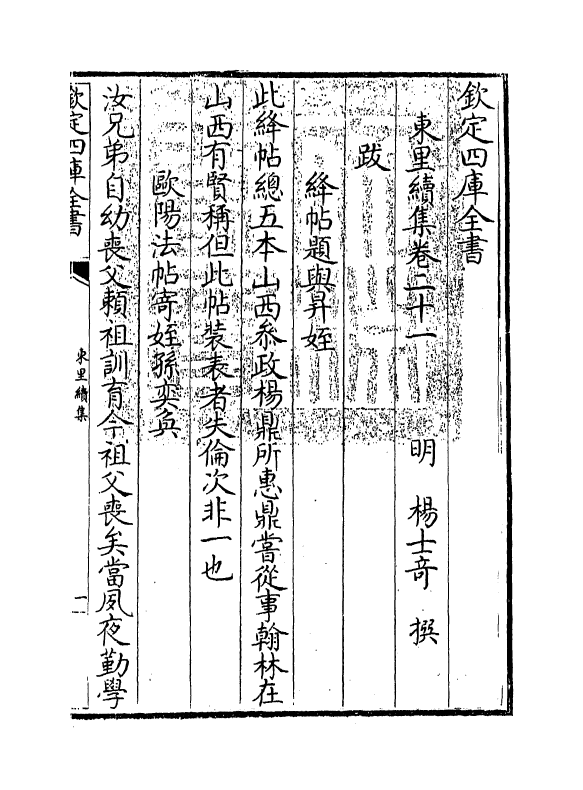 欽定四庫全書
東里續集卷二十一　明　楊士奇　撰
跋
絳帖題與昇姪
此絳帖總五本山西叅政楊鼎所惠鼎嘗從事翰林在
山西有賢稱但此帖裝表者失倫次非一也
歐陽法帖寄姪孫奕兵
汝兄弟自幼喪父頼祖訓育今祖父喪矣當夙夜勤學
欽定四庫全書
東里續集
一